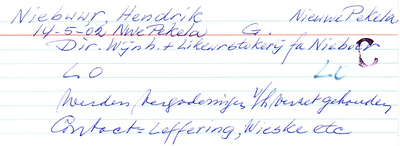 Niebuur, Hendrik Nieuwe Pekela
14-5-02 NwePekela G.
Dir. Wijnh. + Likeurstokerij fa Nieboer C
LO LO
Werden vergaderingen v/h verzet gehouden
Contact = Leffering, Wieske etc